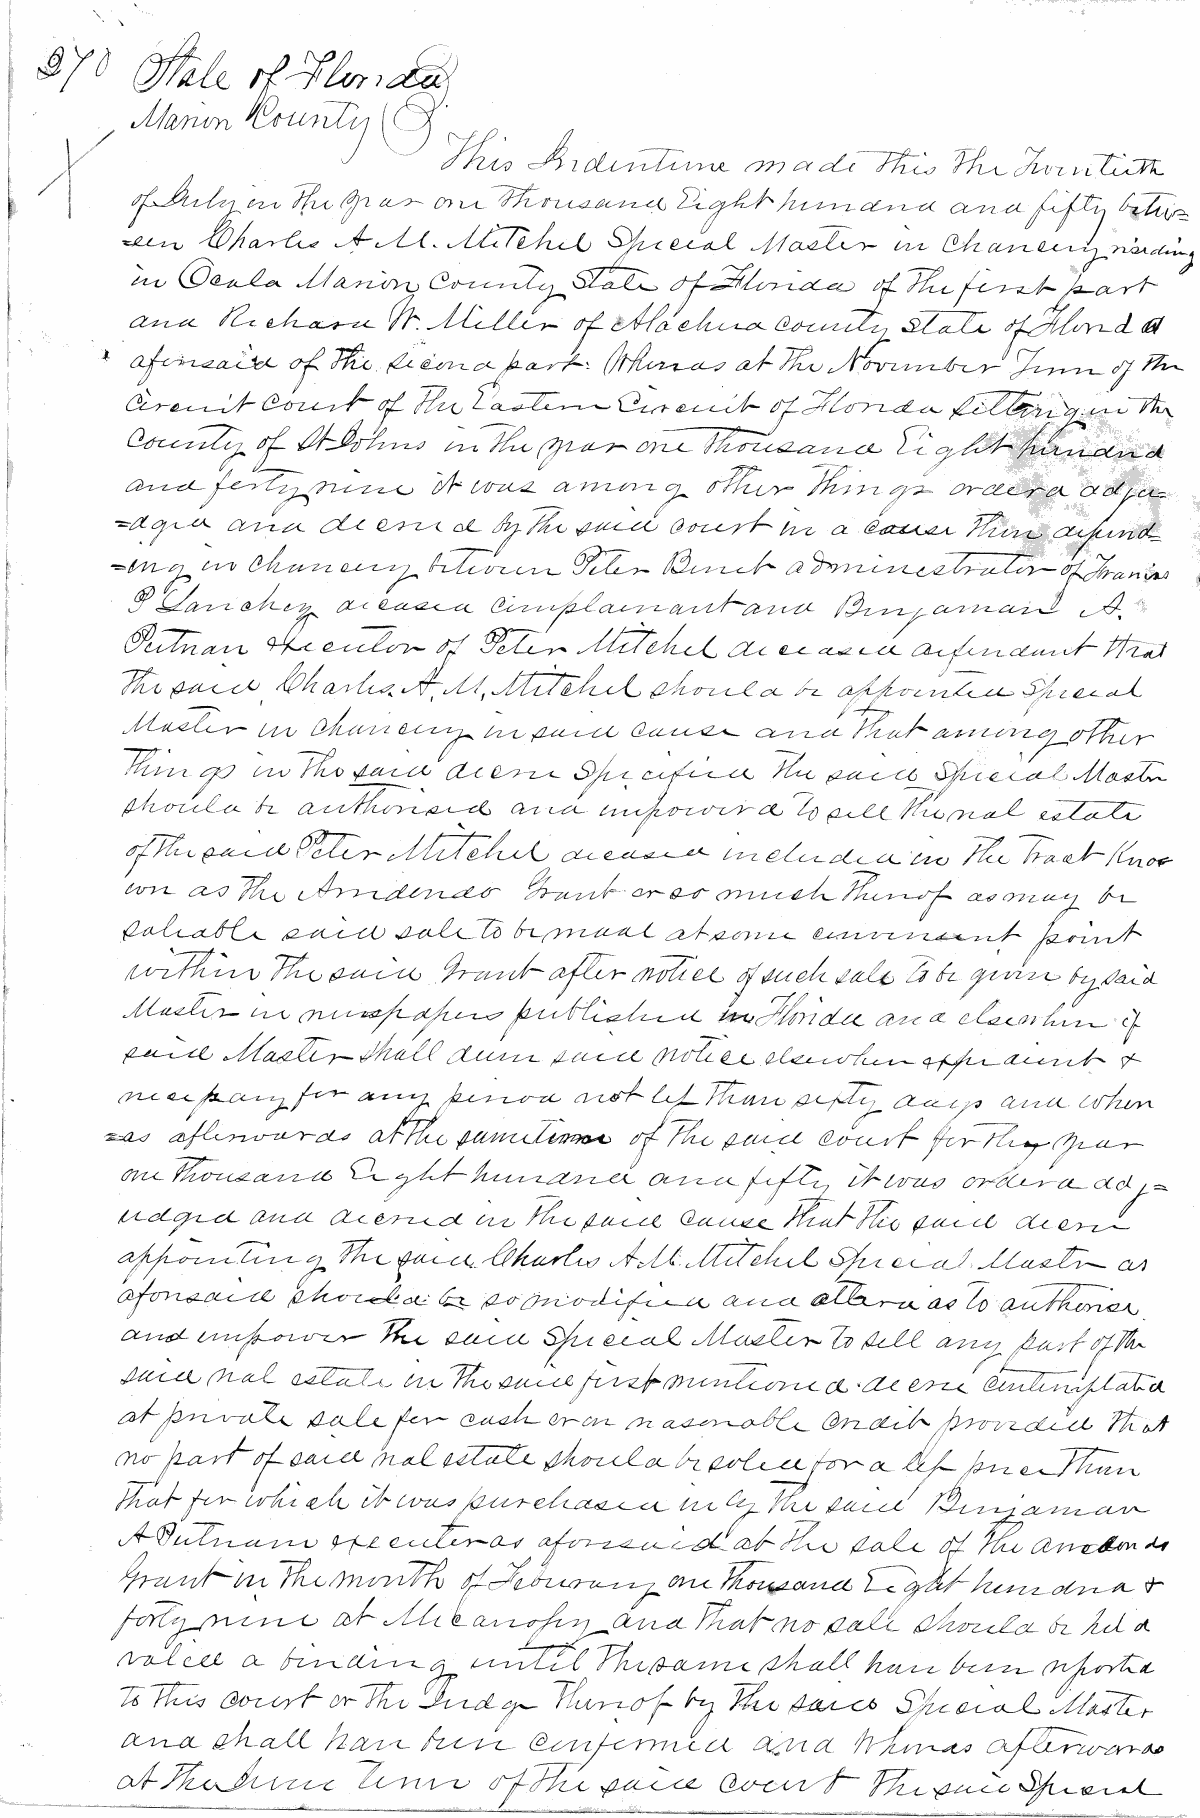 370 State of Florida
Marion County
This Indenture made this the Twentieth
of July in the year one thousand Eight hundred and fifty betw=
=een Charles A. M. Mitchel Special Master in Chancery residing
in Ocala Marion County State of Florida of the first part
and Richard W. Miller of Alachua county State of Florida
aforesaid of the second part: Whereas at the November Term of the
Circuit Court of the Eastern Circuit of Florida sitting in the
County of St Johns in the year one thousand Eight hundred
and forty nine it was among other things ordered adju=
=dged and decreed by the said court in a cause then depend=
=ing in Chancery between Peter Benet administrator of Francis
P Sanchez deceased complainant and Benjaman A.
Putnan executor of Peter Mitchel deceased defendant that
the said Charles A. M. Mitchel should be appointed Special
Master in Chancery in said cause and that among other
things in the said decree Specified the said Special Master
should be authorised and empowered to sell the real estate
of the said Peter Mitchel deceased included in the Tract Kno
wn as the Arredendo Grant or so much thereof as may be
saliable said sale to be made at some convenient point
within the said Grant after notice of such sale to be given by said
Master in newspapers published in Florida and elsewhere if
said Master shall deem said notice elsewhere expedient &
necessary for any period not less than sixty days and where
=as afterwards at the same time of the said court for the year
one thousand Eight hundred and fifty it was ordered adj=
udged and decreed in the said cause that the said decree
appointing the said Charles A. M. Mitchel Special Master as
aforesaid should be so modified and altered as to authorise
and empower the said Special Master to sell any part of the
said real estate in the said first mentioned decree contemplated
at private sale for cash or on reasonable credit provided that
no part of said real estate should be sold for a less price than
that for which it was purchased in by the said Benjaman
A Putnam executer as aforesaid at the sale of the
Grant in the month of Feburary one thousand Eight hundred &
forty nine at Micanopy and that no sale should be held
valied a binding until the same shall have been reported
to this court or the Judge thereof by the said Special Master
and shall have been confirmed and Whereas afterwards
at the June term of the said court the said Special